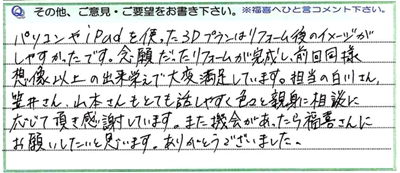 Q その他、ご意見・ご要望をお書き下さい。※福喜へひと言コメント下さい。
パソコンやiPadを使った3Dプランはリフォーム後のイメージが
しやすかったです。念願だったリフォームが完成し、前回同様
想像以上の出来栄えで大変満足しています。担当の白川さん、
笠井さん、山本さんもとても話しやすく色々と親身に相談に
応じて頂き感謝しています。また機会があったら福喜さんに
お願いしたいと思います。ありがとうございました。